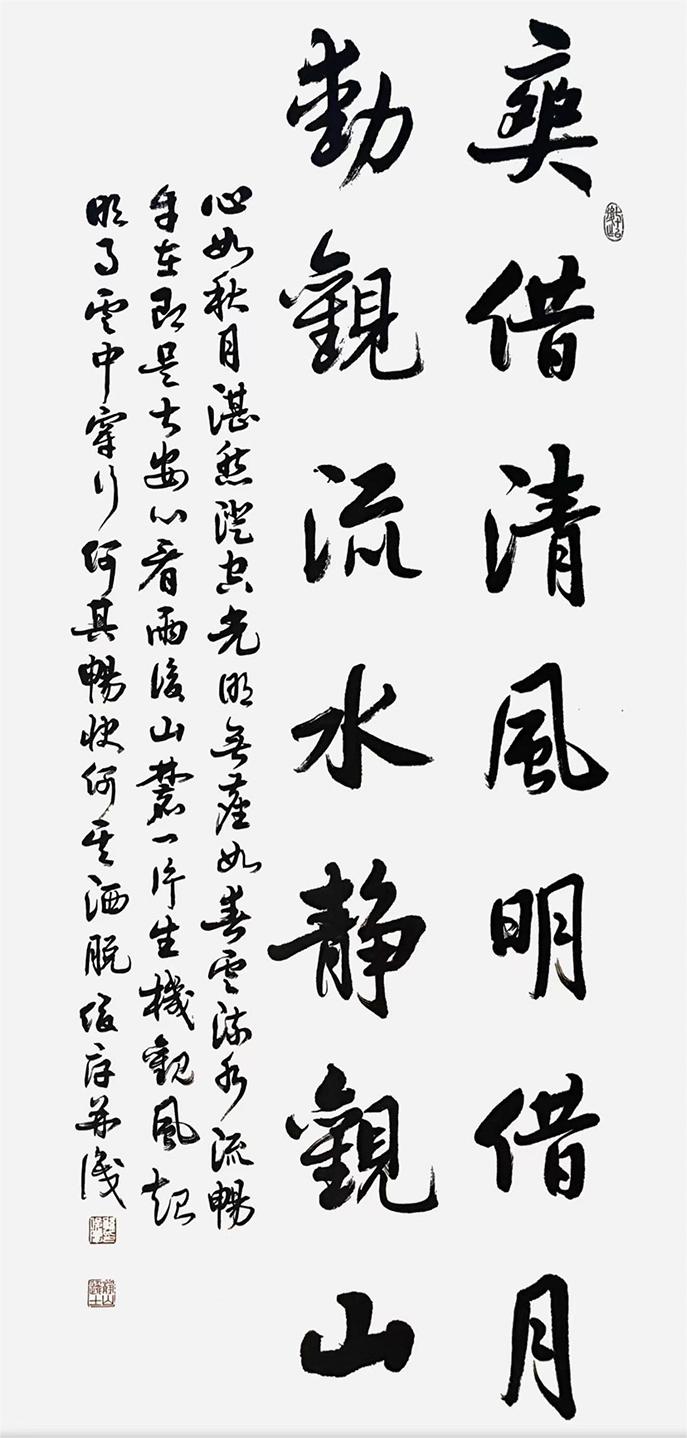 爽借清風明借月
動觀流水靜觀山
心如秋月湛然澄空光明無塵如春雲流水流暢
自在即是大安心看雨後山麓一片生機觀風起
明月雲中穿行何其暢快何其洒脱